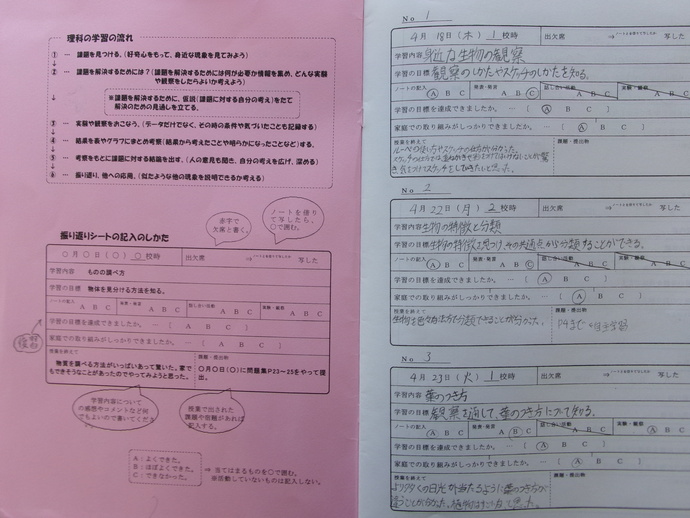 理科の学習の流れ
① … 課題を見つける。(好奇心をもって、身近な現象を見てみよう)
↓
② … 課題を解決するためには?(課題を解決するためには何が必要か情報を集め、どんな実験
や観察をしたらよいか考えよう)
↓
※課題を解決するために、仮説(課題に対する自分の考え)をたて
解決のための見通しを立てる。
③ … 実験や観察をおこなう。(データだけでなく、その時の条件や気づいたことも記録する)
↓
④ … 結果を表やグラフにまとめ考察(結果から考えたことや明らかになったことなど)する。
↓
⑤ … 考察をもとに課題に対する結論を出す。(人の意見も聞き、自分の考えを広げ、深める)
↓
⑥ … 振り返り、他への応用。(似たような他の現象を説明できるか考える)
赤字で
欠席と書く。
ノートを借り
て写したら、
○で読む。
振り返りシートの記入のしかた
○月○日(○) ○校時
出欠席
写した
学習内容 ものの調べ方
学習の目標 物体を見分ける方法を知る。
ノートの記入 A B C
発表・発言 A B C
話し合い活動 A B C
実験・観察 A B C
学習の目標を達成できましたか。 … [ A B C ]
家庭での取り組みがしっかりできましたか。 … [ A B C ]
授業を終えて
物質を調べる方法がいっぱいあって驚いた。家で
もできそうなことがあったのでやってみようと思った。
課題・提出物
○月○日(○)に問題集P23~25をやって提
出。
学習内容について
の感想やコメントなど何
でもよいので書いてくださ
授業で出された
課題や宿題があれば
記入する。
A:よくできた。
B:ほぼよくできた。
C:できなかった。
⇒ 当てはまるものを○で読む。
※活動していないものは記入しない。
No 1
4月18日(木) 1校時
出欠席
写した
学習内容 身近な生物の観察
学習の目標 観察のしかたやスケッチのしかたを知る。
ノートの記入 A B C
発表・発言 A B C
話し合い活動 A B C
実験・観察 A B C
学習の目標を達成できましたか。 … [ A B C ]
家庭での取り組みがしっかりできましたか。 … [ A B C ]
授業を終えて
ルーペの使い方やスケッチの仕方が分かった。
課題・提出物
No 2
4月22日(月) 2校時
出欠席
写した
学習内容 生物の特徴と分類
学習の目標 生物の特徴を見つけ、その共通点から分類することができる。
ノートの記入 A B C
発表・発言 A B C
話し合い活動 A B C
実験・観察 A B C
学習の目標を達成できましたか。 … [ A B C ]
家庭での取り組みがしっかりできましたか。 … [ A B C ]
授業を終えて
課題・提出物
P4まで 自主学習
No 3
4月23日(火) 1校時
出欠席
写した
学習内容 葉のつき方
学習の目標 観察を通して、葉のつき方について知る。
ノートの記入 A B C
発表・発言 A B C
話し合い活動 A B C
実験・観察 A B C
学習の目標を達成できましたか。 … [ A B C ]
家庭での取り組みがしっかりできましたか。 … [ A B C ]
授業を終えて
課題・提出物
より多くの日光が当たるように葉のつき方が